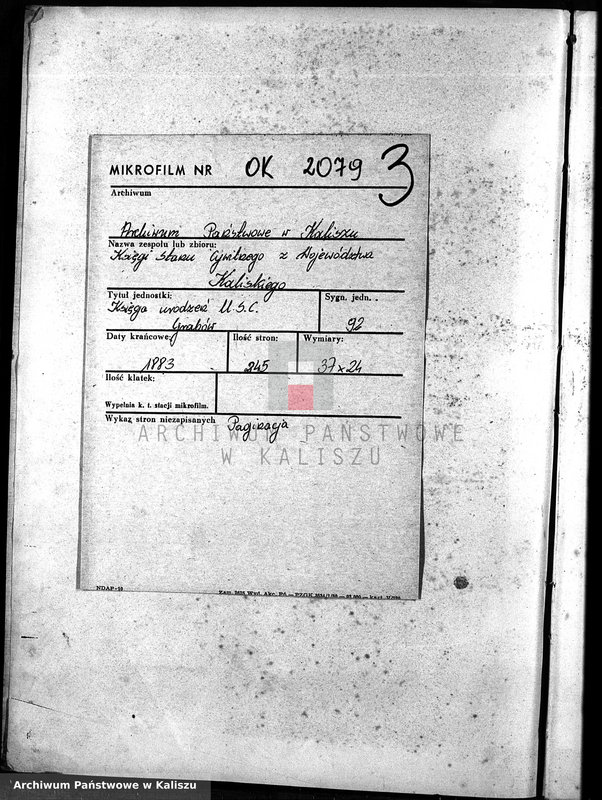 MIKROFILM NR OK 2079 3
Archiwum
Archiwum Państwowe w Kaliszu
Nazwa zespołu lub zbioru:
Księgi Stanu Cywilnego z Województwa
Kaliskiego
Tytuł jednostki: Sygn. jedn.
Księga urodzeń U.S.C.
Grabów 92
Daty krańcowe: Ilość stron: Wymiary:
1883 245 37x24
Ilość klatek:
Wypełnia k. t. stacji mikrofilm.
Wykaz stron niezapisanych Paginacja
ARCHIWUM PAŃSTWOWE
W KALISZU
NDAP-10
Archiwum Państwowe w Kaliszu